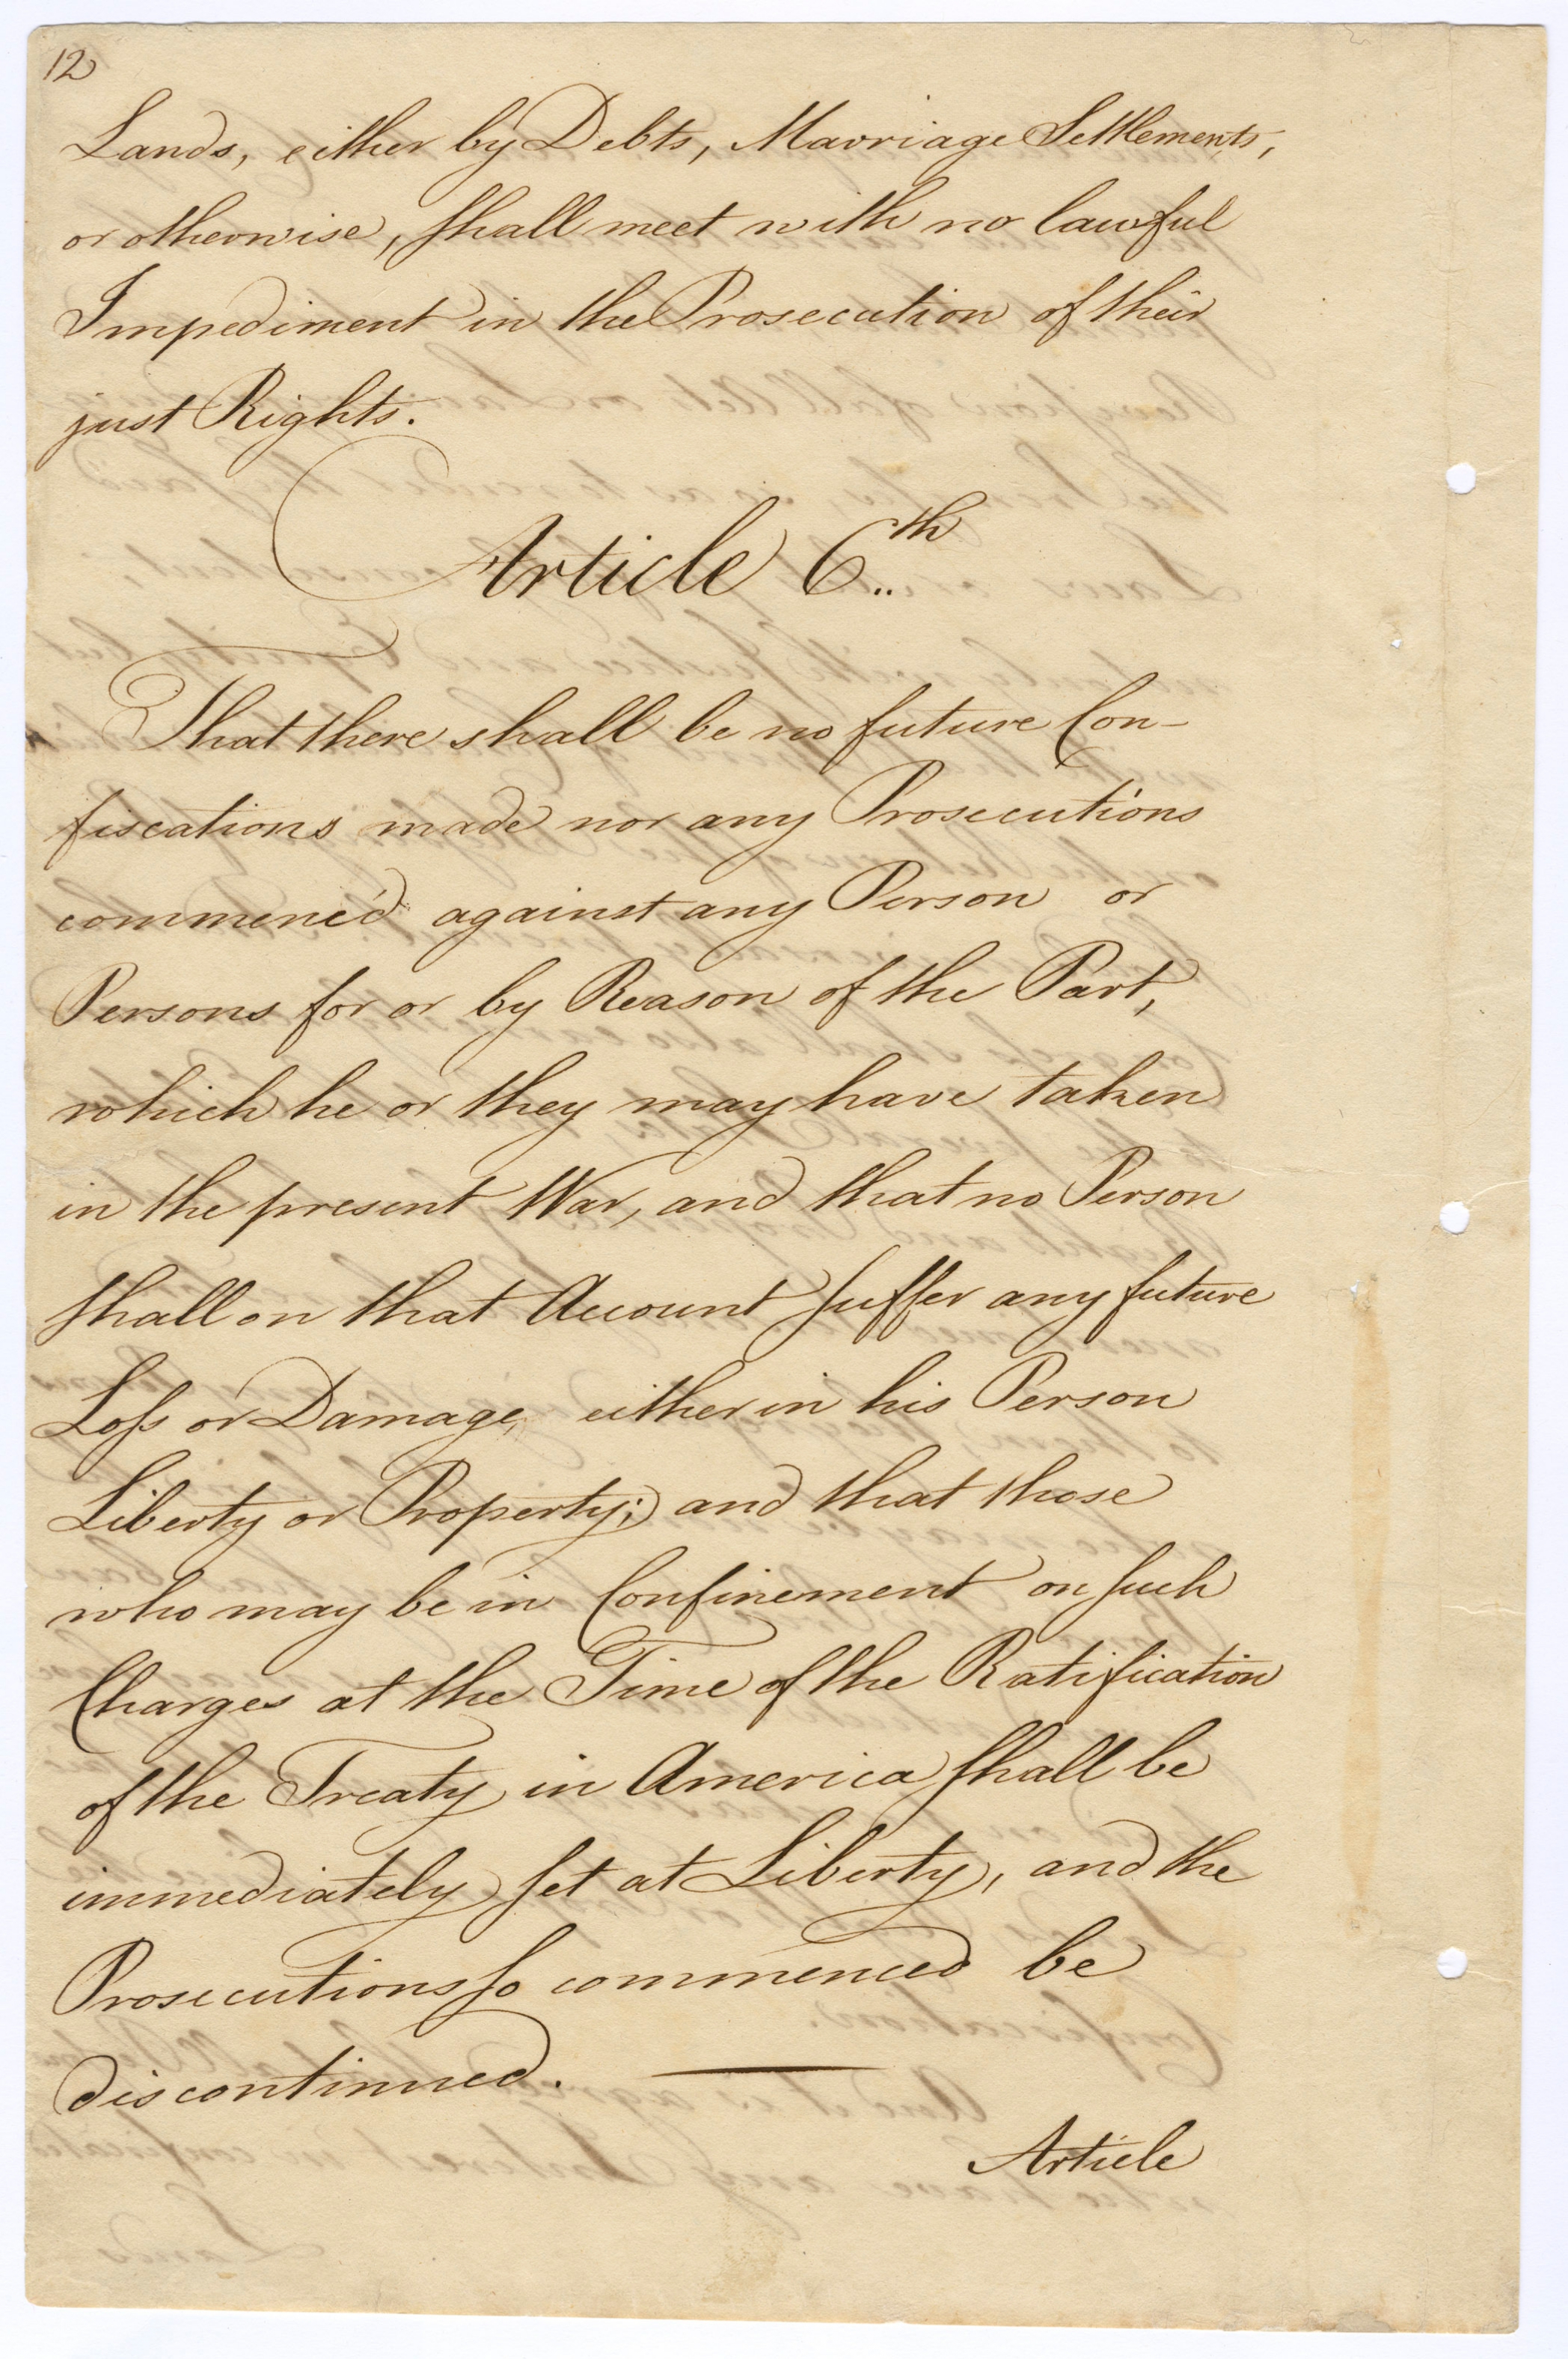 12
Lands, either by Debts, Marriage Settlements,
or otherwise, shall meet with no lawful
Impediment in the Prosecution of their
just Rights.
Article 6th
That there shall be no future Con-
fiscations made nor any Prosecutions
commenc'd against any Person or
Persons for or by Reason of the Part,
which he or they may have taken
in the present War, and that no Person
shall on that Account suffer any future
Loss or Damage, either in his Person
Liberty or Property; and that those
who may be in Confinement on such
Charges at the Time of the Ratification
of the Treaty in America shall be
immediately set at Liberty, and the
Prosecutions so commenced be
discontinued.
Article